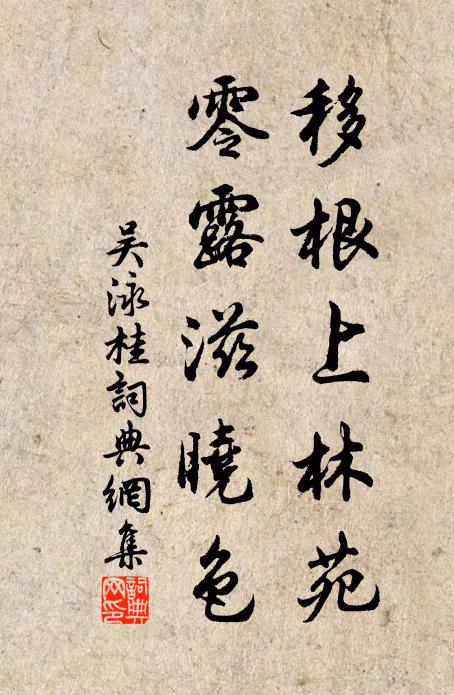 移根上林苑
零露滋曉色
吴泳桂詞典網集
詞典
网印